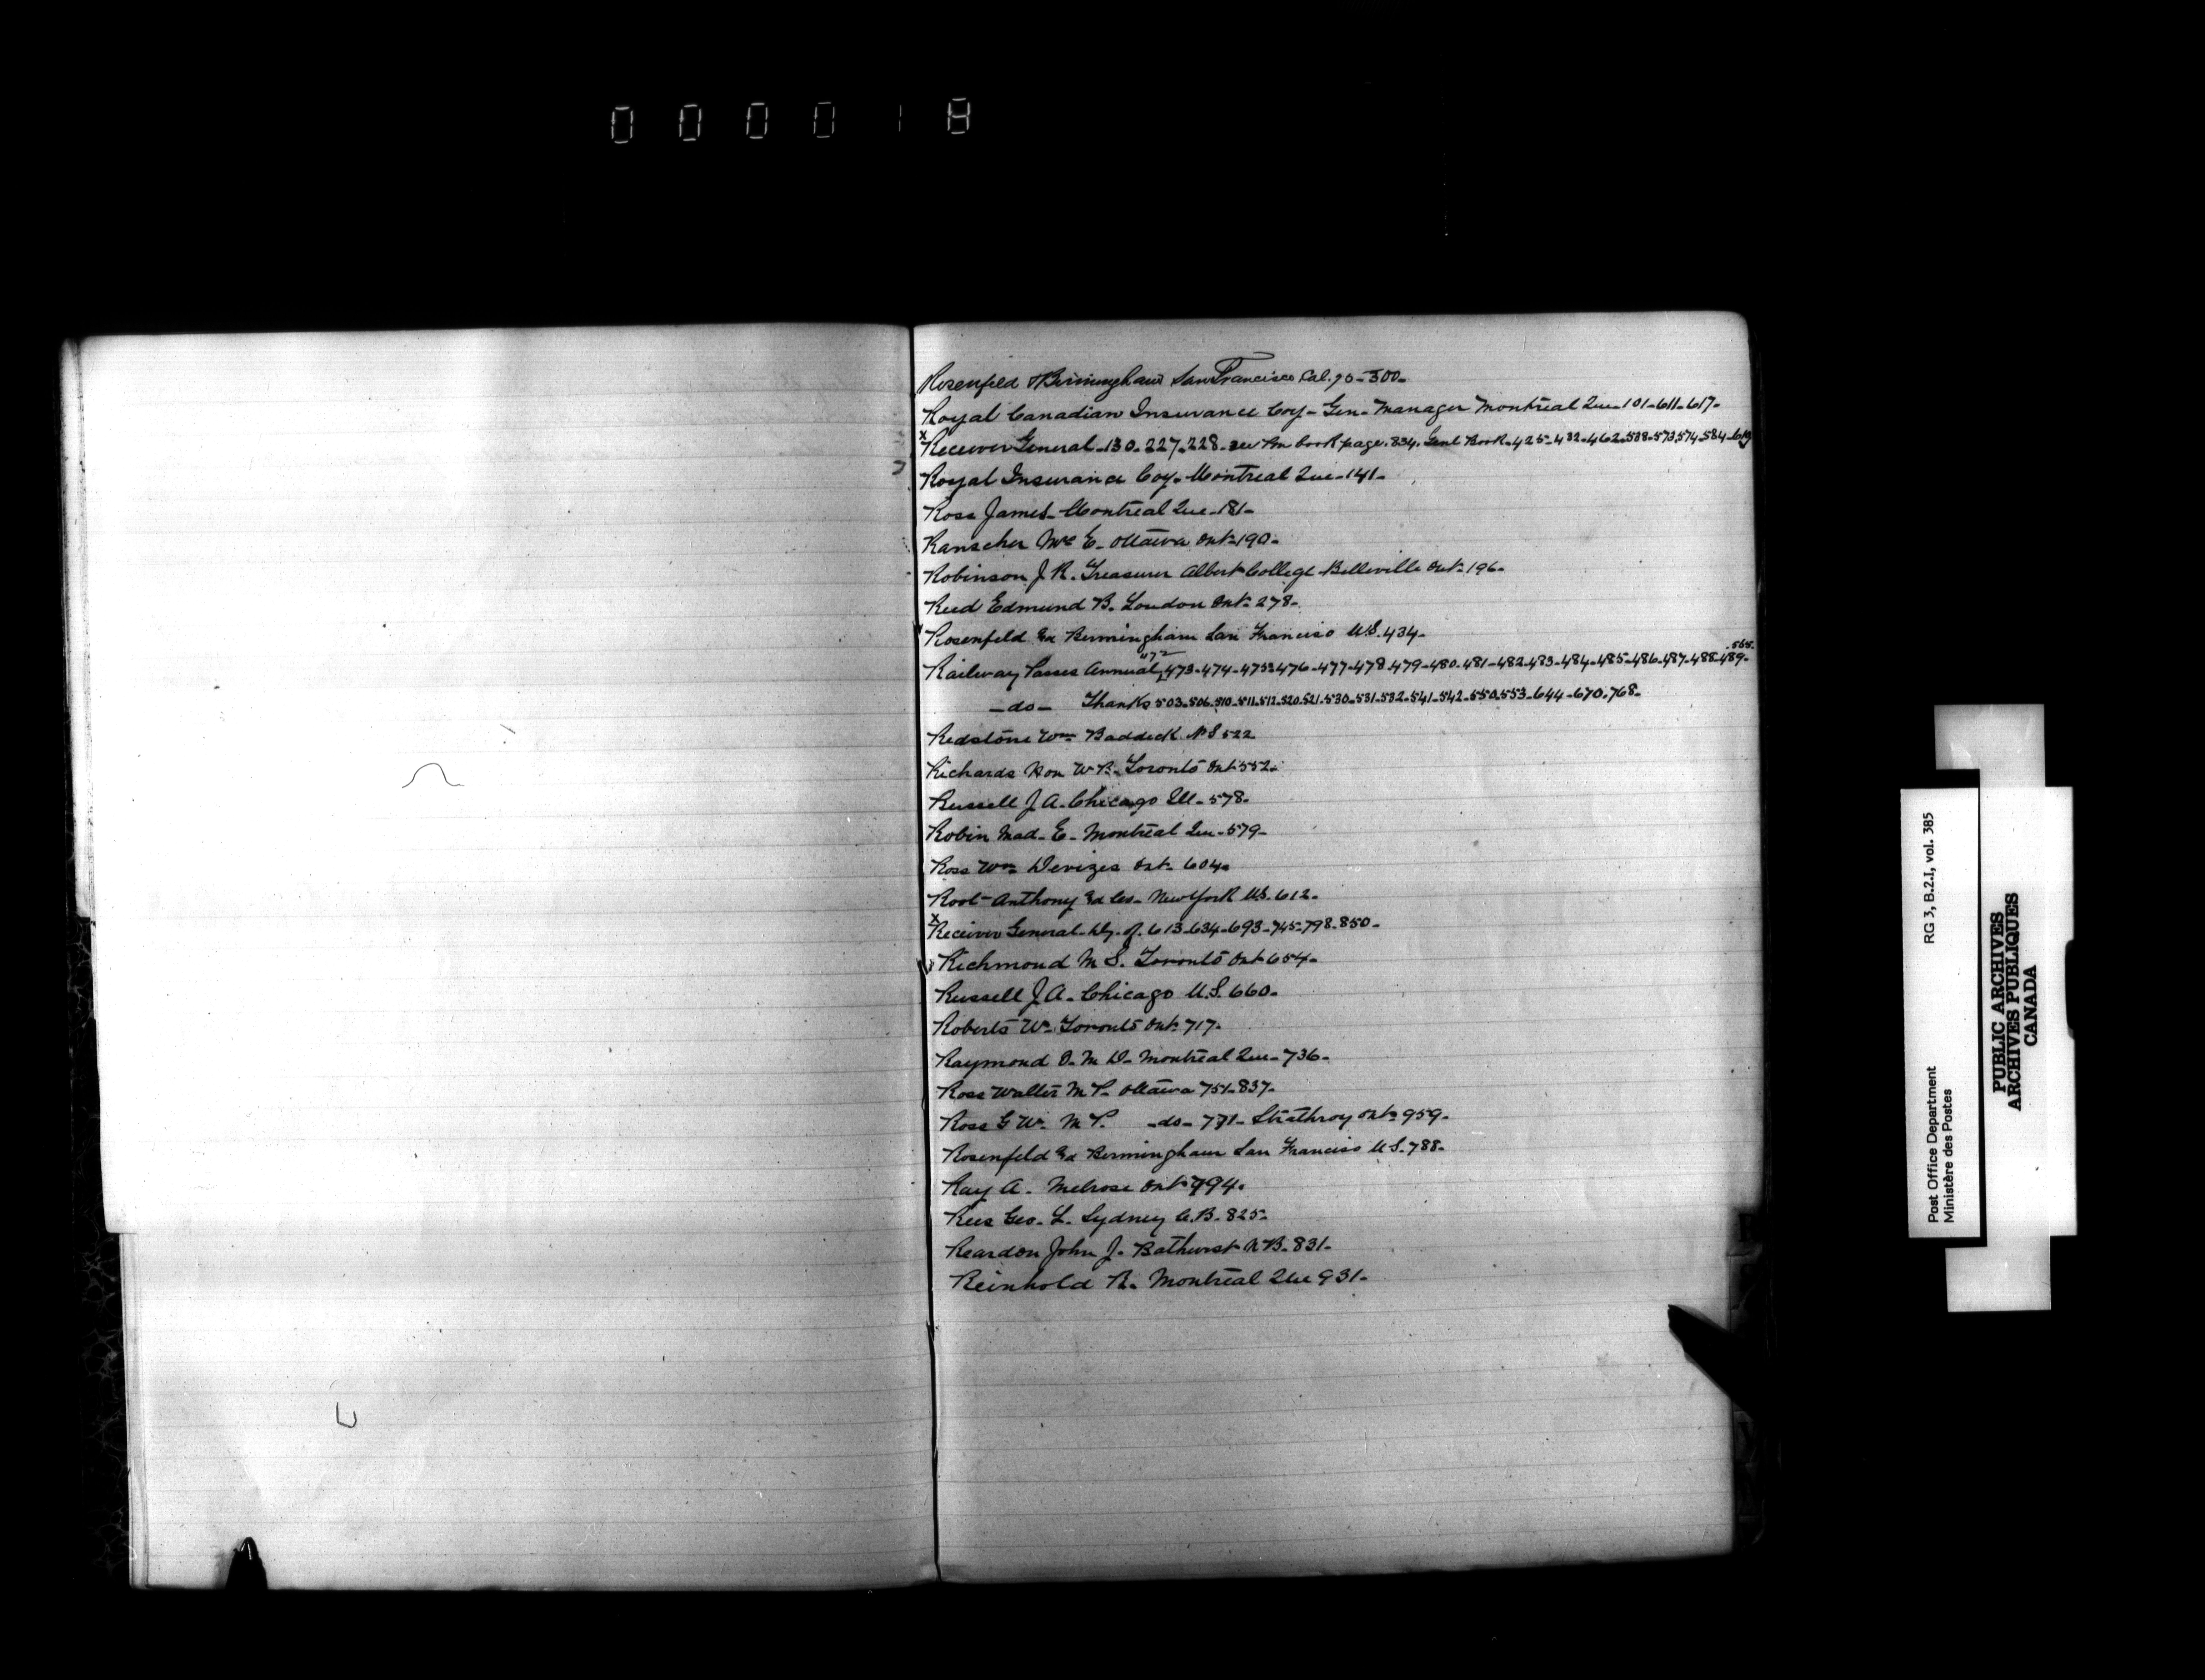 000018
Rosenfeld & Birmingham San Francisco Cal. 70-300-
Royal Canadian Insurance Coy- Gen- Manager Montreal Que-101-611-617-
x Receiver General-130-227-228- see Pm book page. 834. Genl Book-425-432-462-538-573,574-584-
Royal Insurance Coy- Montreal Que-141-
Ross James- Montreal Que-181-
Ranscher E- Ottawa Ont-190-
Robinson J R. Treasurer Albert College Belleville Ont-196-
Reed Edmund B. London Ont-278-
Rosenfeld & Bermingham San Francisco U.S. 434-
.565.
472
Railway Passes Annual, 473-474-475-476-477-478-479-480-481-482-483-484-485-486-487-488-489-
-do- Thanks 503-506-510-511-512-520-521-530-531-532-541-542-550-553-644-670-768-
Redstone Wm Baddeck N S 522
Richards Hon W B- Toronto Ont 552-
Russell J A- Chicago Ill- 578-
Robin Mad- E- Montreal Que-579-
Ross Wm Devizes Ont- 604-
Root- Anthony & Co- New York U.S. 612-
x Receiver General- Dy- of. 613-634-693-745-798-850-
Richmond M S. Toronto Ont 654-
Russell J A- Chicago U.S. 660-
Roberts W- Toronto Ont-717-
Raymond O- M D- Montreal Que-736-
Ross Walter M P- Ottawa 751-837-
Ross G W. M P. -do- 771- Strathroy Ont-959-
Rosenfeld & Bermingham San Francisco U.S. 788-
Ray A- Melrose Ont 794-
Rees Geo- L. Sydney C.B- 825-
Reardon John J- Bathurst N B- 831-
Reinhold R- Montreal Que 931-
Post Office Department RG 3, B.2.I, vol. 385
Ministère des Postes
PUBLIC ARCHIVES
ARCHIVES PUBLIQUES
CANADA